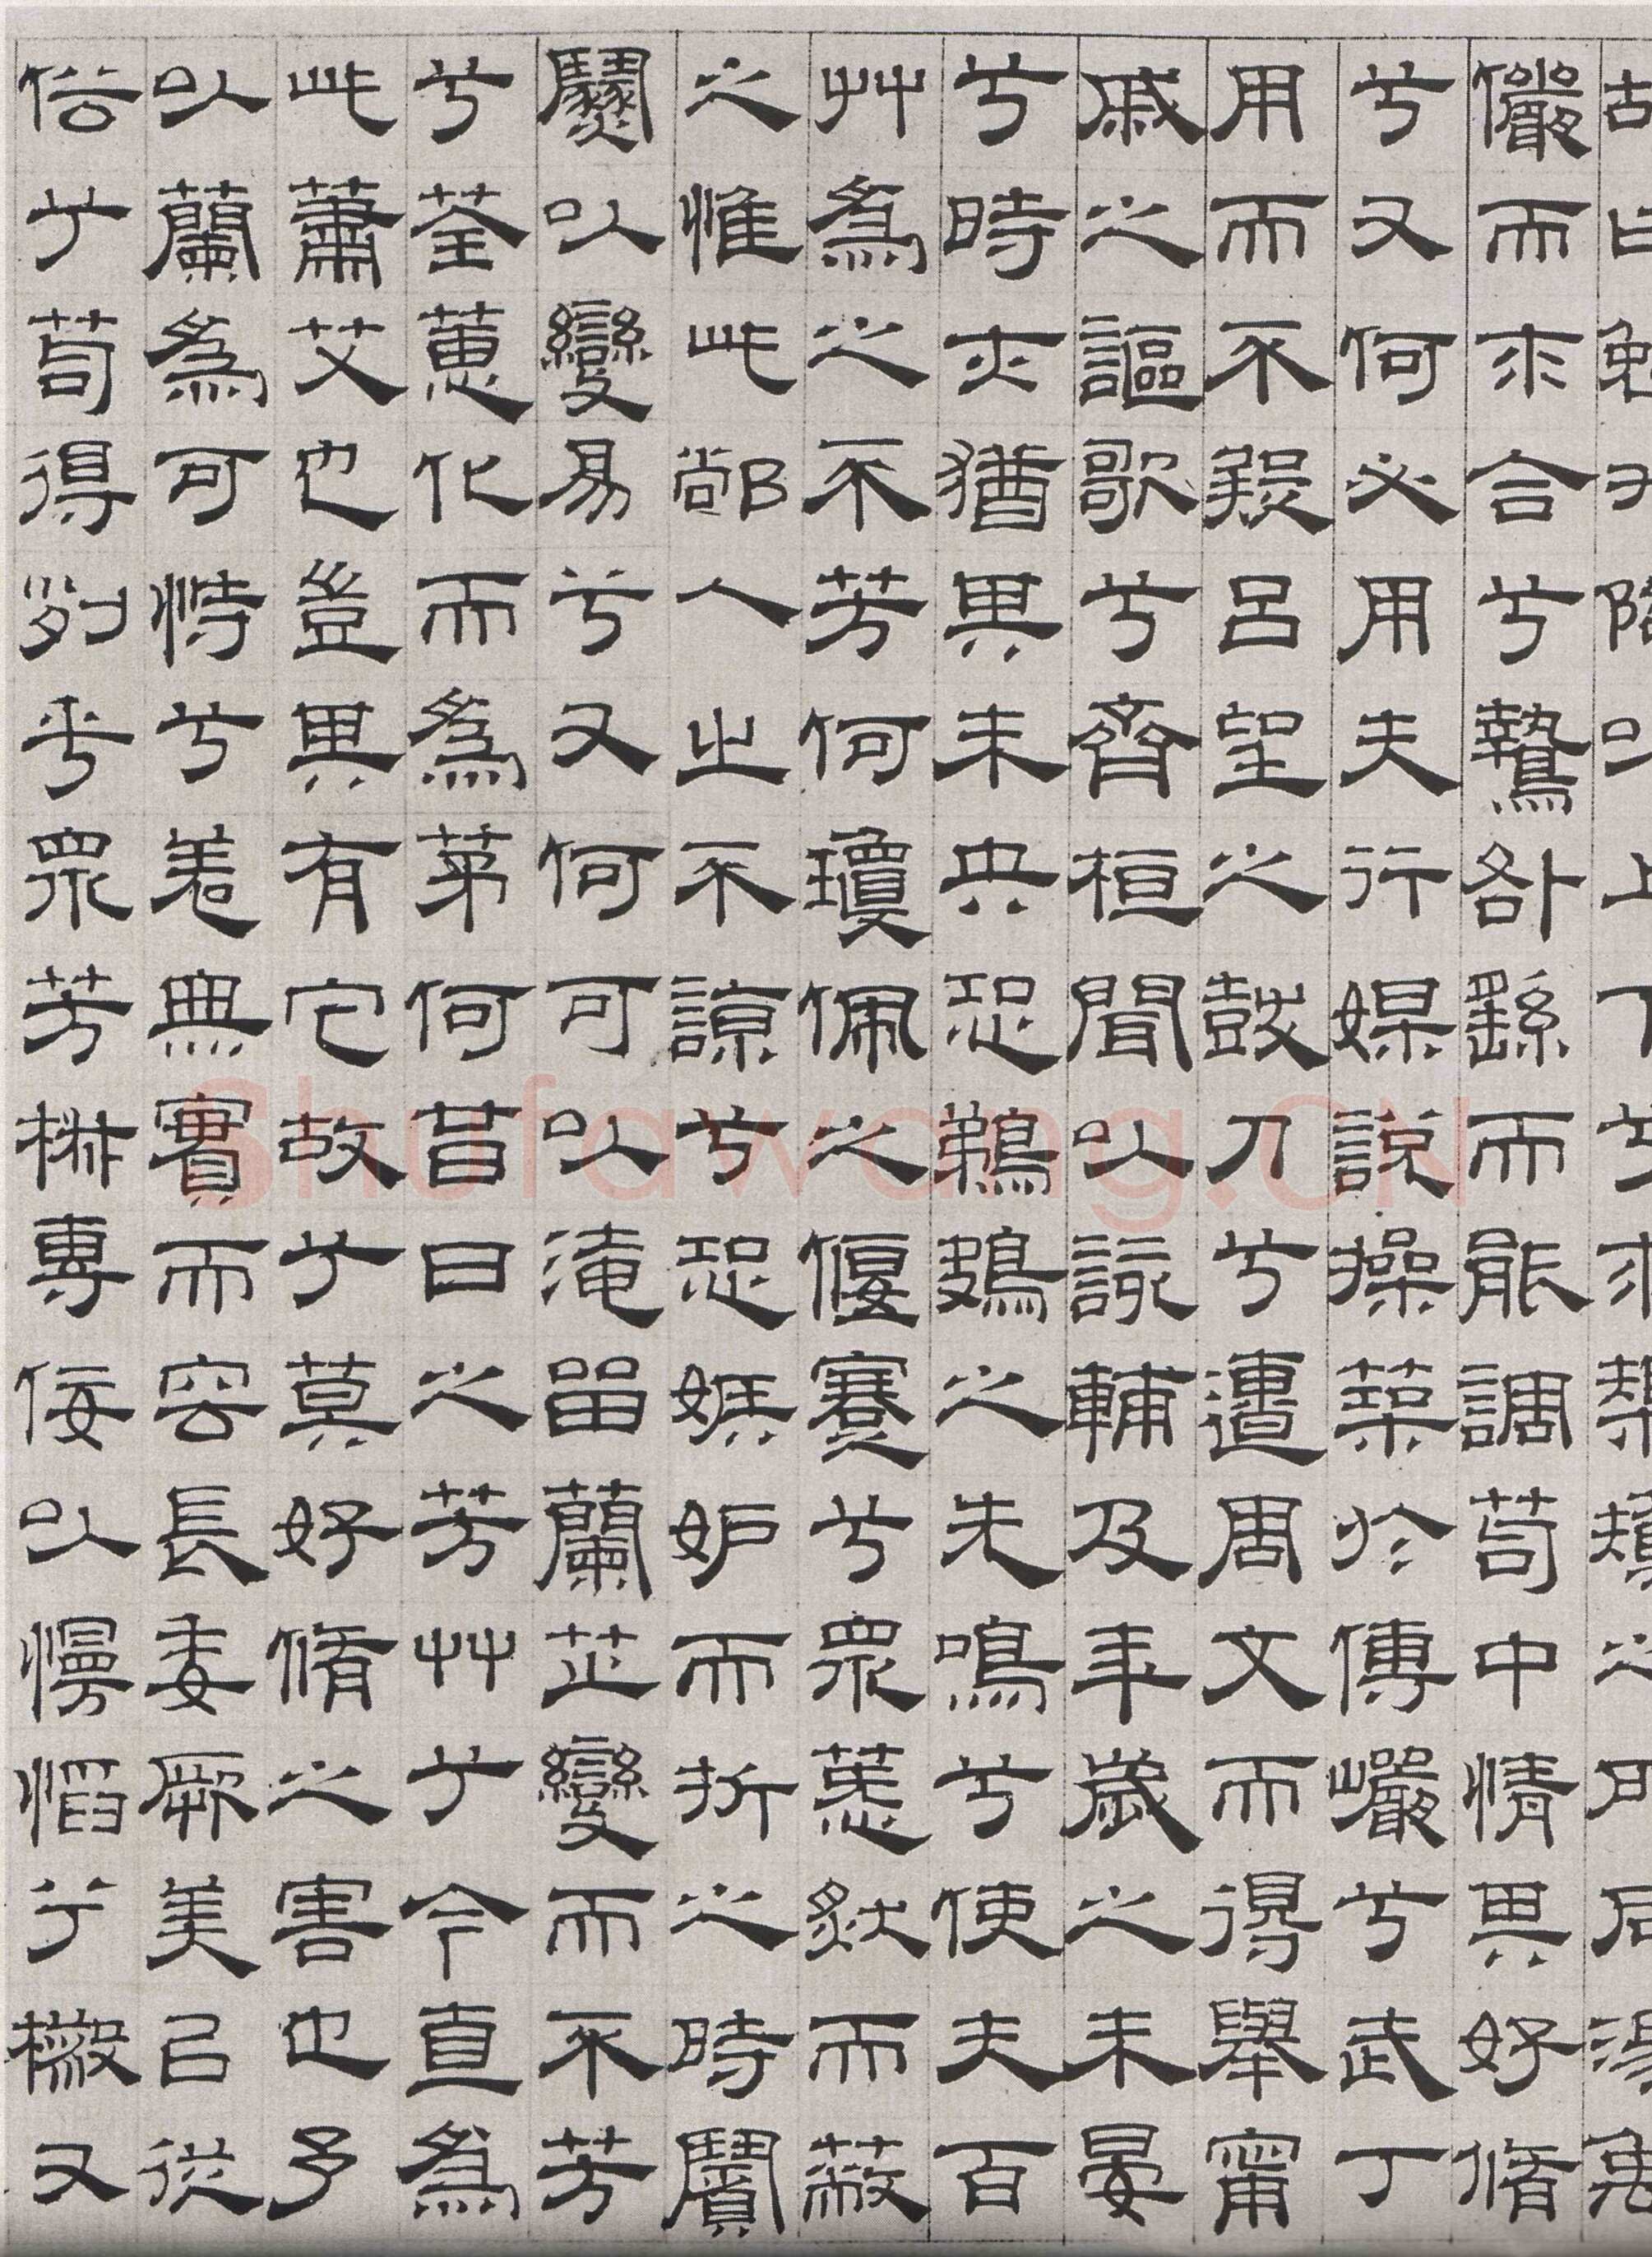 故曰勉升降以上下兮求榘矱之所同湯禹
儼而求合兮摯咎繇而能調苟中情其好脩
兮又何必用夫行媒說操築於傅巖兮武丁
用而不疑呂望之鼓刀兮遭周文而得舉甯
戚之謳歌兮齊桓聞以該輔及年歲之未晏
兮時亦猶其未央恐鵜鴂之先鳴兮使夫百
艸為之不芳何瓊佩之偃蹇兮眾薆然而蔽
之惟此䣊人之不諒兮恐嫉妒而折之時繽
紛以變易兮又何可以淹留蘭芷變而不芳
兮荃蕙化而為茅何昔日之芳艸兮今直為
此蕭艾也豈其有它故兮莫好脩之害也予
以蘭為可恃兮羌無實而容長委厥美㠯從
俗兮苟得列乎眾芳椒專佞以慢慆兮樧又
Shufawang.CN